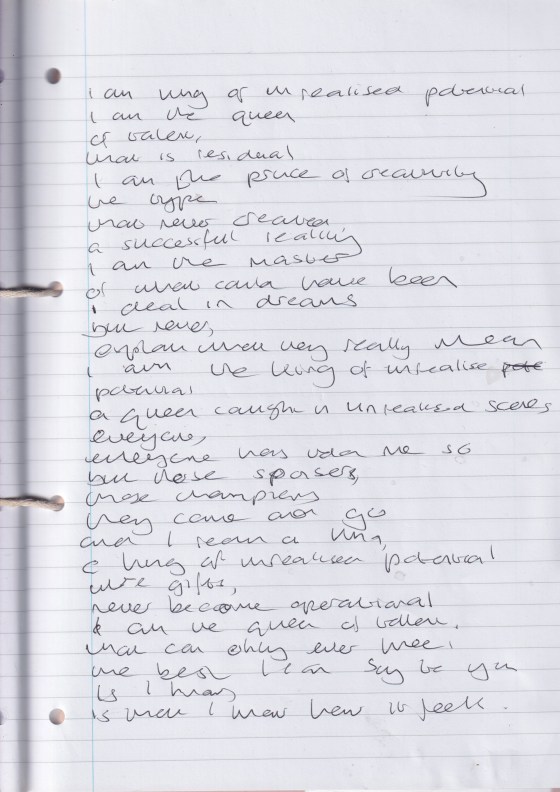 I am king of unrealised potential
I am the queen
of talent,
that is residual
I am the prince of creativity
the type
that never creates
a successful reality
I am the master
of what could have been
I deal in dreams
but never,
explain what they really mean
I am the king of unrealise
potential
a queen caught in unrealised scenes
everyone,
everyone has told me so
but those
those champions
they come and go
and I remain a king,
a king of unrealised potential
gifts,
never become operational
I am the queen of talent.
that can only ever
the best I can say to you
is I
is that I know how it feels.